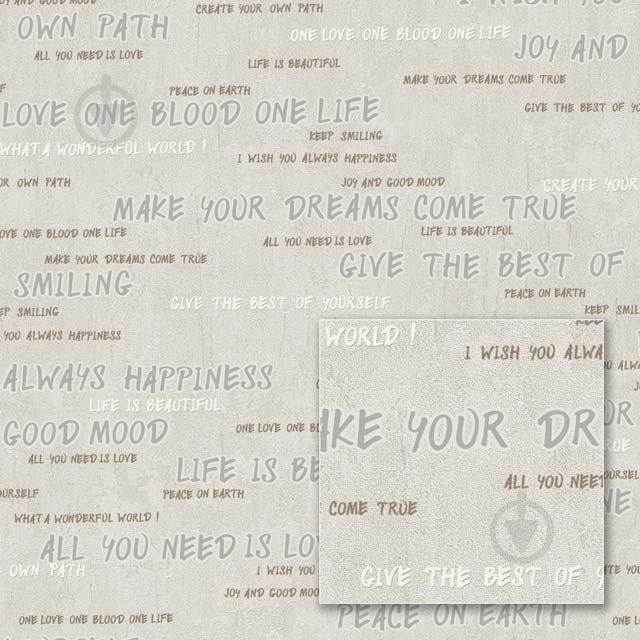 JOY AND GOOD MOOD
I WISH YOU
CREATE YOUR OWN PATH
OWN PATH
ONE LOVE ONE BLOOD ONE LIFE
JOY AND
ALL YOU NEED IS LOVE
LIFE IS BEAUTIFUL
MAKE YOUR DREAMS COME TRUE
PEACE ON EARTH
LOVE ONE BLOOD ONE LIFE
GIVE THE BEST OF
KEEP SMILING
WHAT A WONDERFUL WORLD !
I WISH YOU ALWAYS HAPPINESS
OWN PATH
JOY AND GOOD MOOD
CREATE YOUR
MAKE YOUR DREAMS COME TRUE
LOVE ONE BLOOD ONE LIFE
LIFE IS BEAUTIFUL
ALL YOU NEED IS LOVE
MAKE YOUR DREAMS COME TRUE
GIVE THE BEST OF
SMILING
PEACE ON EARTH
GIVE THE BEST OF YOURSELF
SMILING
KEEP SMILING
WORLD !
YOU ALWAYS HAPPINESS
I WISH YOU ALWA
ALWAYS HAPPINESS
LIFE IS BEAUTIFUL
GOOD MOOD
ONE LOVE ONE BL
KE YOUR DR
ALL YOU NEED IS LOVE
LIFE IS BE
ALL YOU NEET
PEACE ON EARTH
COME TRUE
WHAT A WONDERFUL WORLD !
ALL YOU NEED IS LO
OWN PATH
I WISH YOU
GIVE THE BEST OF
JOY AND GOOD MOO
PEACE ON EARTH
ONE LOVE ONE BLOOD ONE LIFE